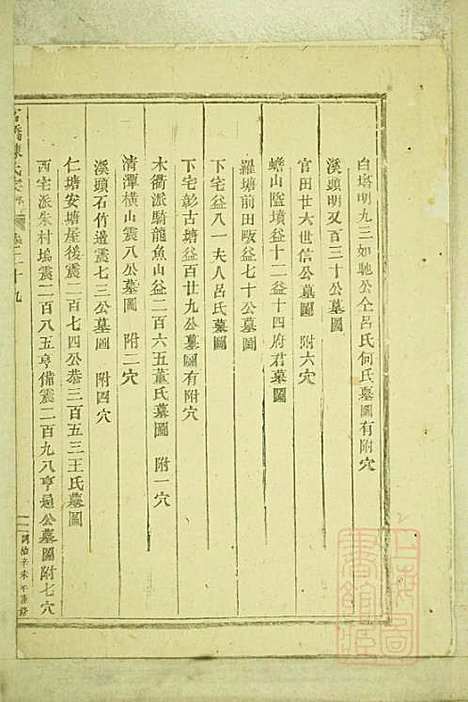 白塔明九三如馳公仝呂氏何氏墓圖有附穴
溪頭明又百三十公墓圖
官田廿六世信公墓圖 附六穴
蟾山隘墳益十二益十四府君墓圖
羅塘前田畈益七十公墓圖
下宅益八一夫人呂氏墓圖
下宅彭古塘益百廿九公墓圖有附穴
木衢派騎龍魚山益二百六五董氏墓圖 附一穴
清潭橫山震八公墓圖 附二穴
溪頭石竹遵震七三公墓圖 附四穴
仁塘安塘屋後震二百七四公恭三百五三王氏墓圖
西宅派朱村塢震二百八五亨備震二百九八亨通公墓圖附七穴
陳氏宗
二十九